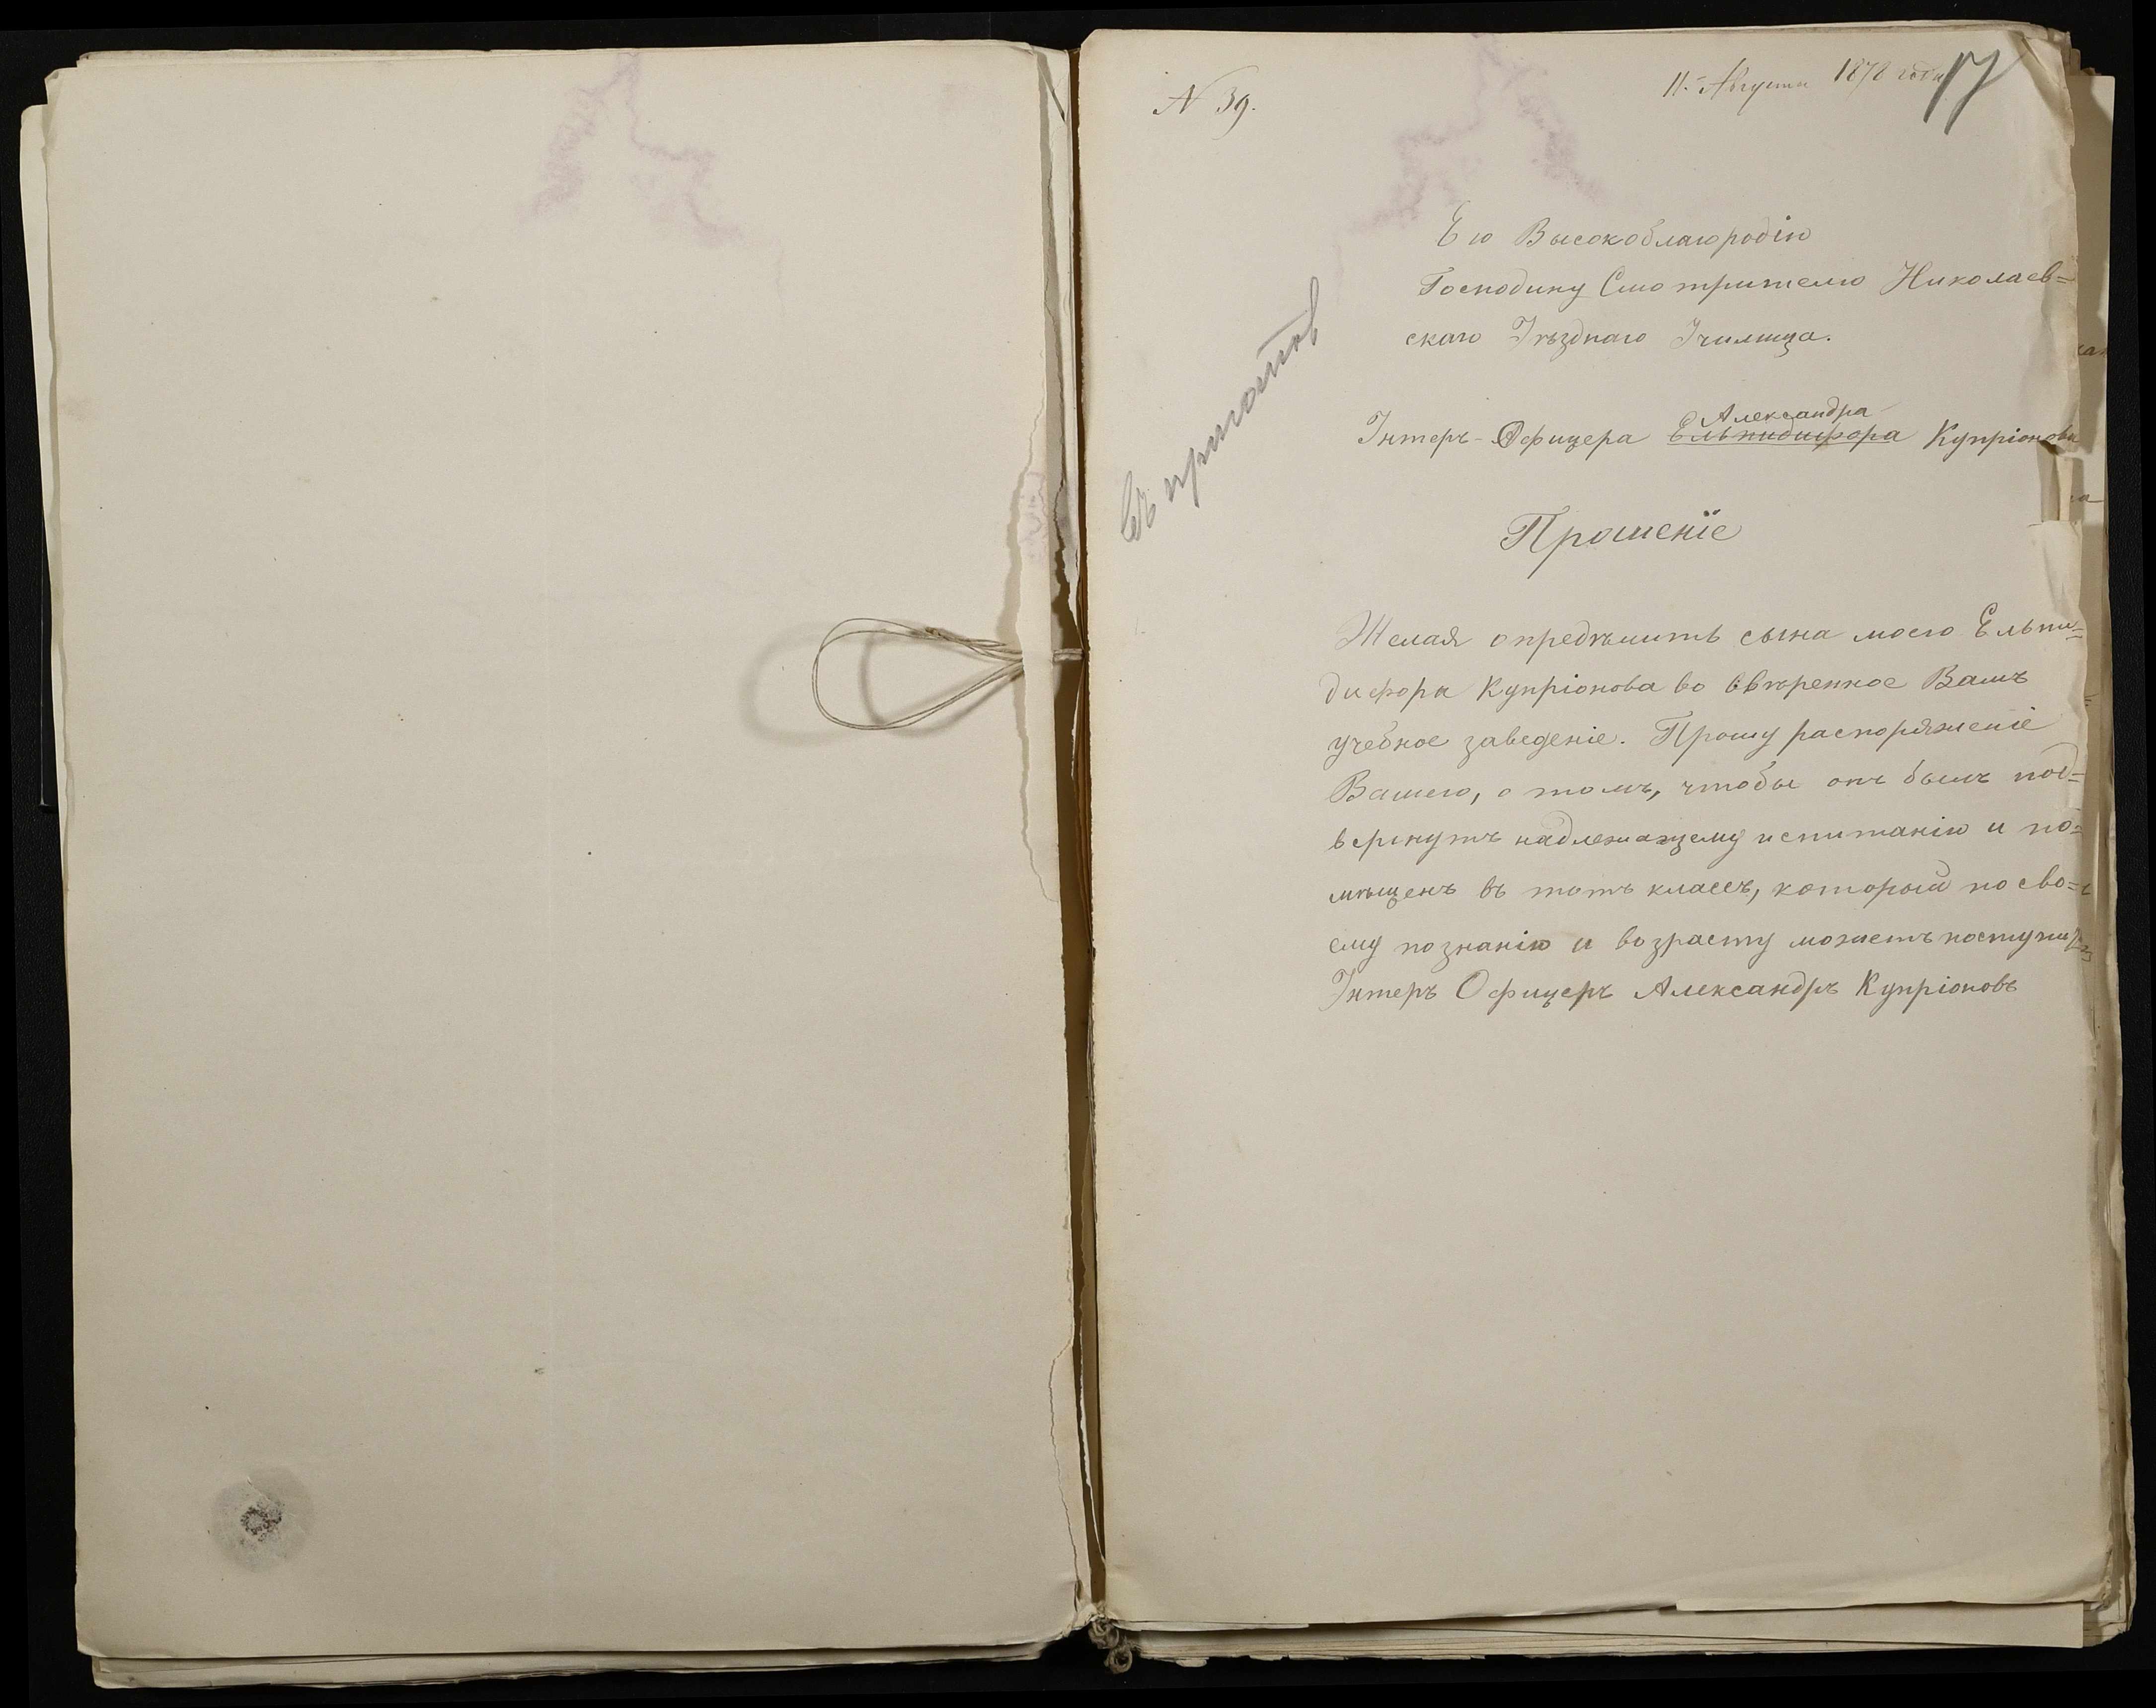 N 39.
11. Августа 1878 года
17
Его Высокоблагородію
Господину Смотрителю Николаев=
скаго Уѣзднаго Училища.
Александра
Унтеръ-Офицера Ельпидифора Купріонова
Прошеніе
Желая опредѣлить сына моего Ельпи=
дифора Купріонова во ввѣренное Вамъ
учебное заведеніе. Прошу распоряженіе
Вашего, о томъ, чтобы онъ былъ под=
вергнутъ надлежащему испитанію и по=
мѣщенъ въ тотъ классъ, который по сво=
ему познанію и возрасту можетъ поступить
Унтеръ Офицеръ Александръ Купріоновъ